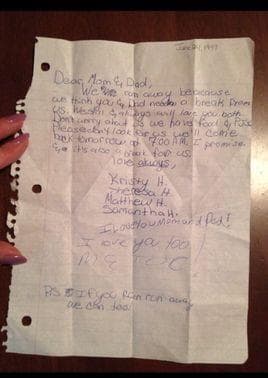 June 24, 1997
Dear Mom & Dad,
We ran away because
we think you & Dad need a break from
us. We still & always will love you both.
Don't worry about us we have food & PJs.
Please don't look for us we'll come
back tomorrow at 7:00 A.M. I promise.
it's also a break for us.
love always,
Kristy H.
Theresa H.
Mathew H.
Samantha H.
I Love You Mom and Dad!
I love you too
PS If you ran away
we can too.